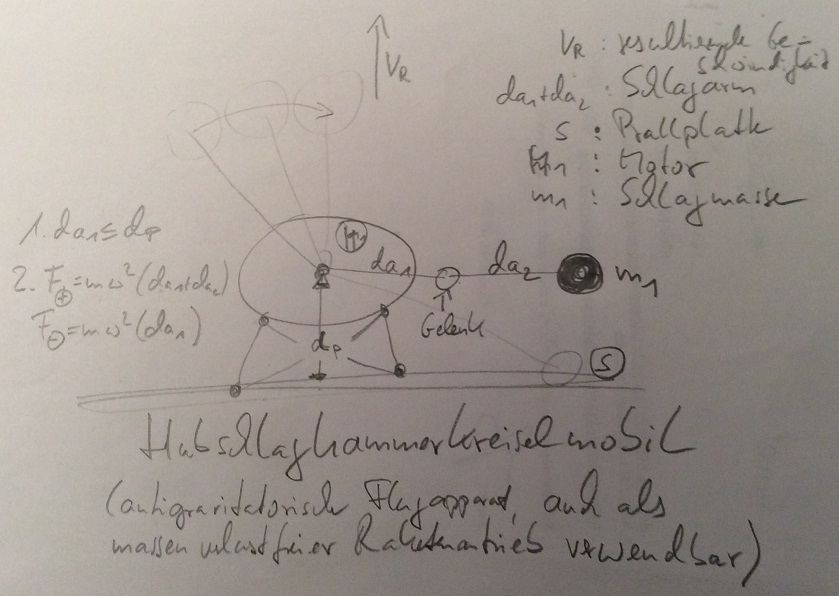 V_R
V_R : resultierende Ge-
schwindigkeit
da₁+da₂ : Schlagarm
S : Prallplatte
M₁ : Motor
m₁ : Schlagmasse
1. da₁ ≤ dp
2. F⊕ = mω²(da₁+da₂)
F⊖ = mω²(da₁)
M
da₁
da₂
m₁
Gelenk
dp
S
Hubschlaghammerkreiselmobil
(antigravitatorischer Flugapparat, auch als
massenverlustfreier Raketenantrieb verwendbar)